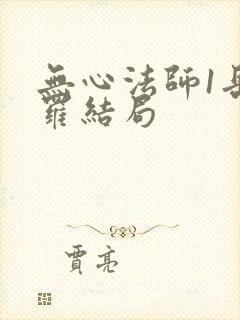 無心法師1岳
羅結局
賈亮